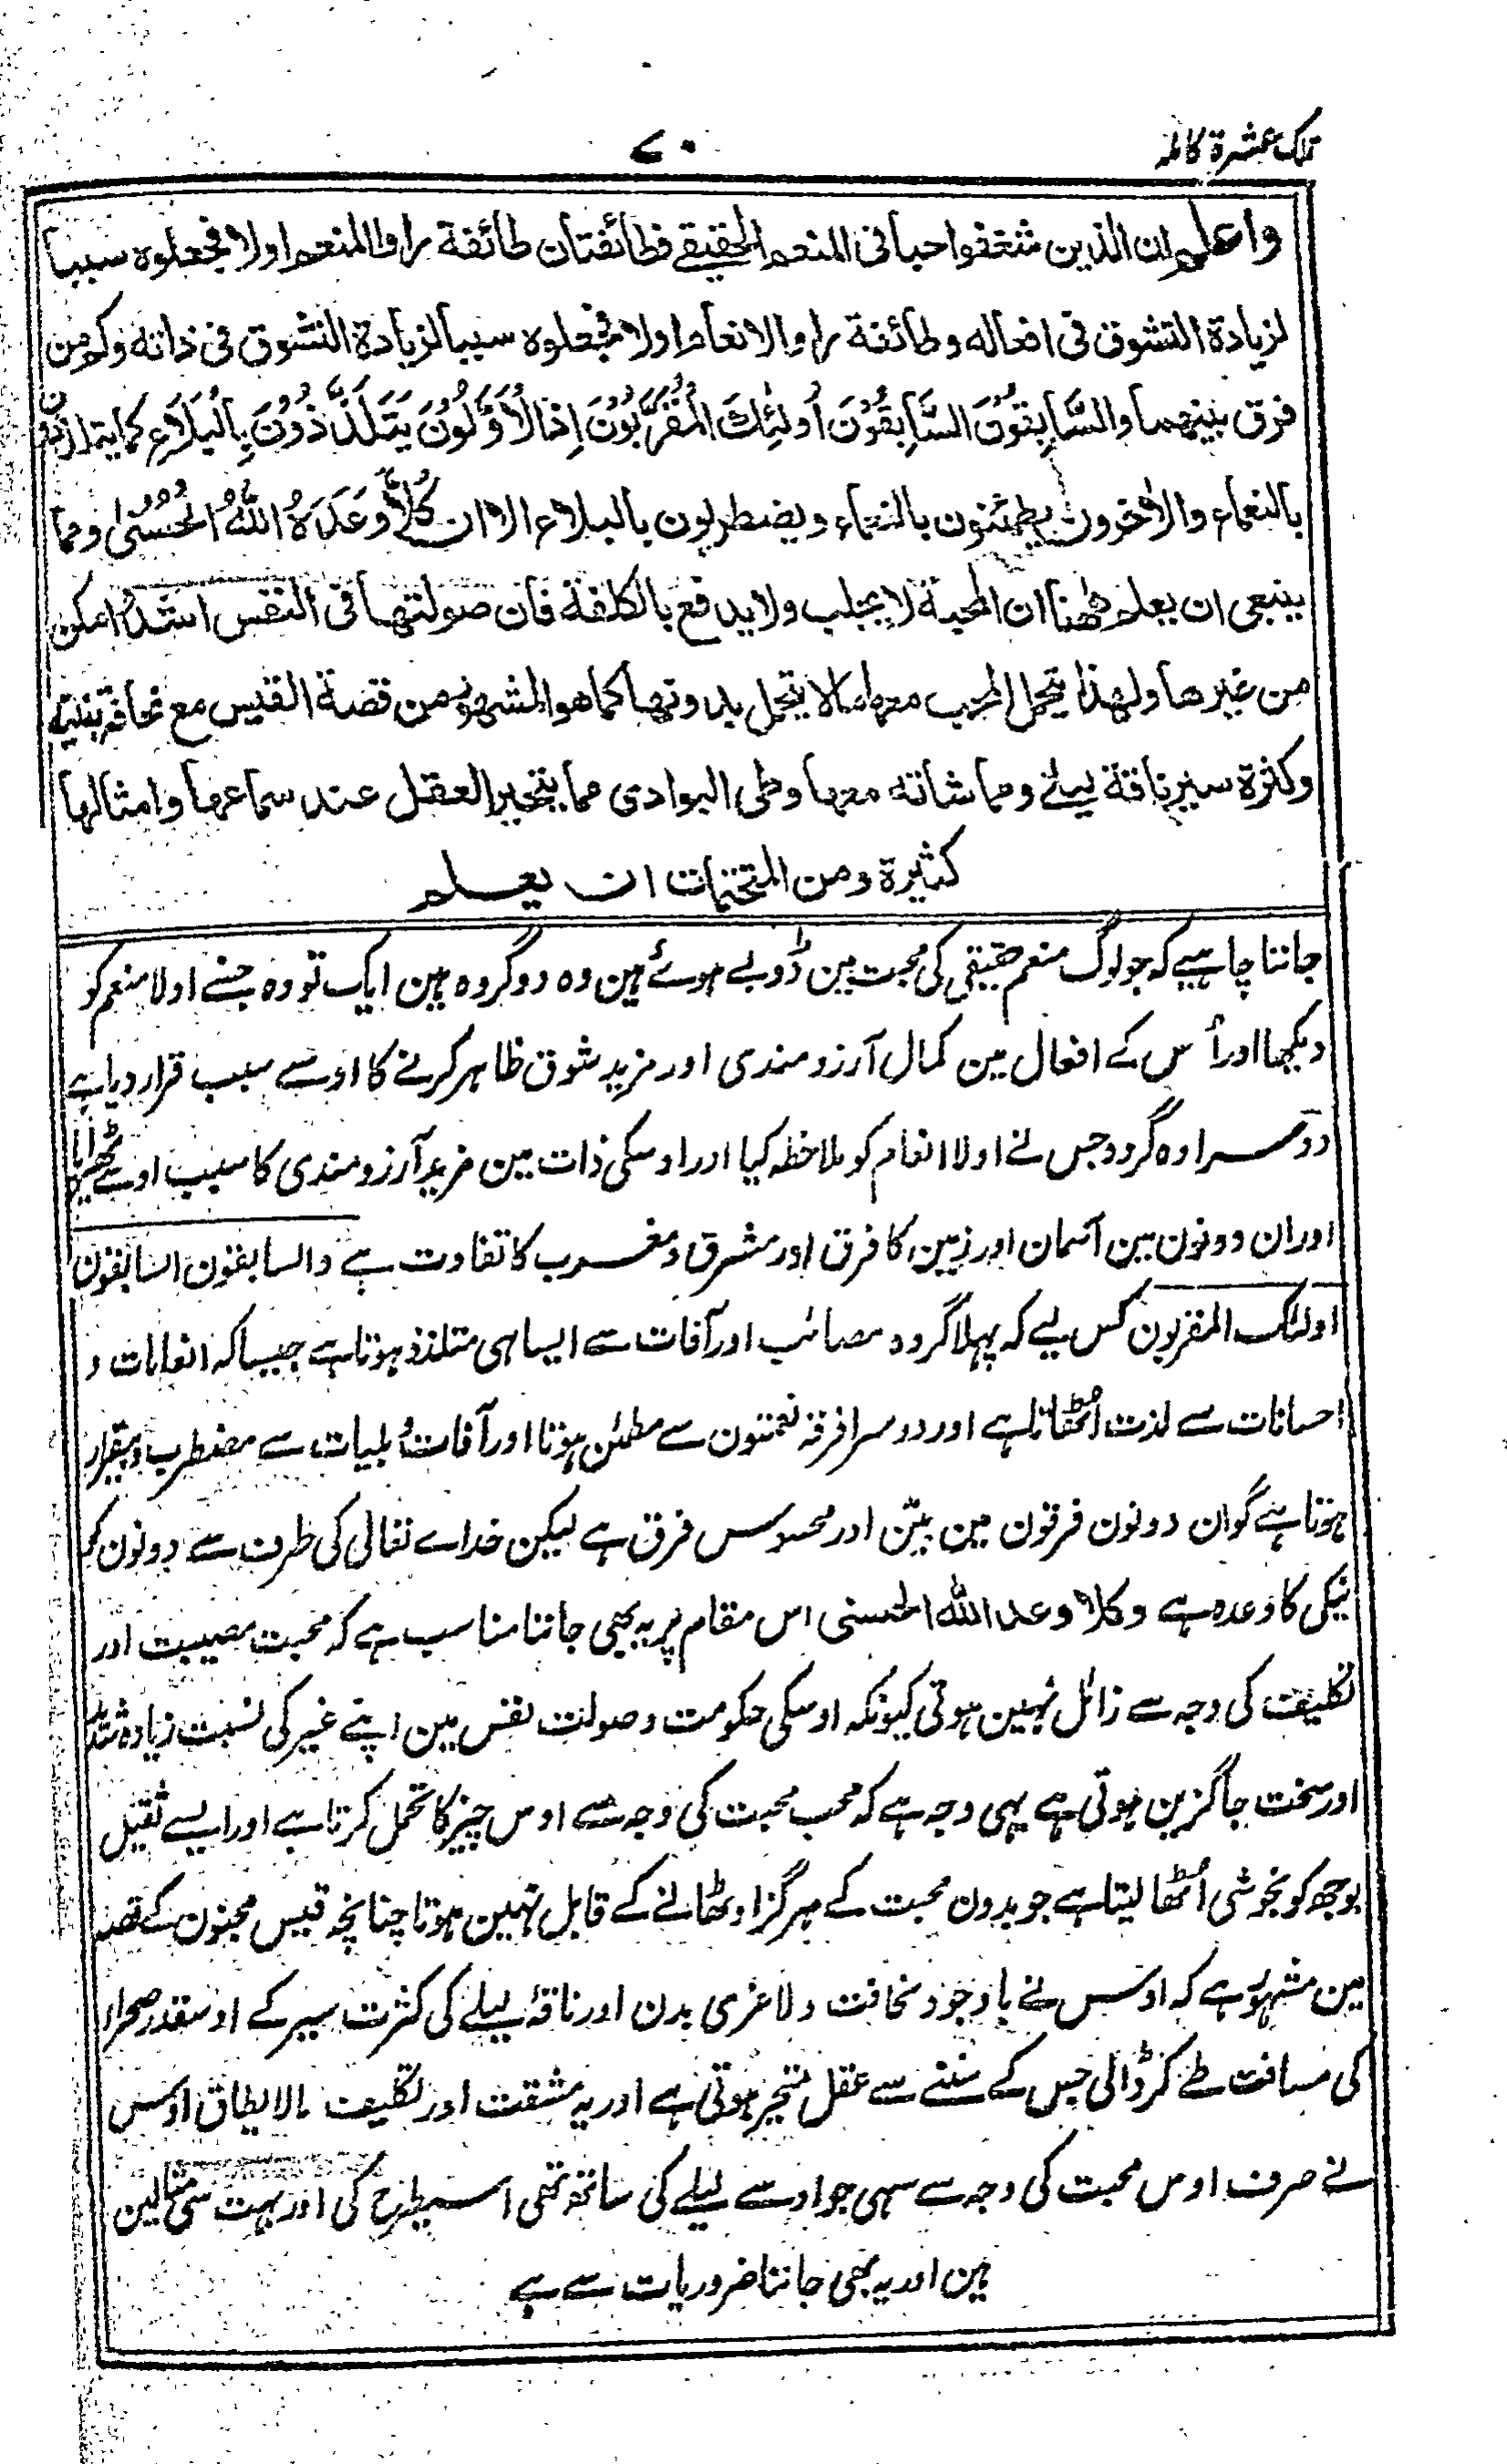 تلک عشرة کاملہ
۷۰
واعلم ان الذين شغفوا حبا فی المنعم الحقيقے فطائفتان طائفة راوا المنعم اولا فجعلوه سببا
لزيادة التشوق فی افعاله وطائفة راوا الانعام اولا فجعلوه سببا لزيادة التشوق فی ذاته وکم من
فرق بينهما والسَّابِقُوْنَ السَّابِقُوْنَ اُولٰئِكَ الْمُقَرَّبُوْنَ اِذَا لْاَوَّلُوْنَ يَتَلَذَّذُوْنَ بِالْبَلَاءِ کما يتلذذون
بالنعماء والاٰخرون يطمئنون بالنعماء ويضطربون بالبلاء الا ان كُلًّا وَعَدَهُ اللّٰهُ الْحُسْنٰی ومما
ينبغی ان يعلم ھٰهنا ان المحبة لا يجلب ولا يدفع بالكلفة فان صولتها فی النفس اشد امكن
من غيرها ولهذا يتحمل المحب معها ما لا يتحمل بدونها كما هو المشهور من قصة القيس مع نحافة بنيته
وكثرة سير ناقة ليلے ومماشاته معها وطی البوادی مما يتحير العقل عند سماعها وامثالها
كثيرة ومن المتحتمات ان يعلم
جاننا چاہیے کہ جو لوگ منعم حقیقی کی محبت مین ڈوبے ہوئے ہین وہ دو گروہ ہین ایک تو وہ جسنے اولا منعم کو
دیکھا اور اُس کے افعال مین کمال آرزو مندی اور مزید شوق ظاہر کرنے کا اوسے سبب قرار دیا ہے
دوسرا وہ گروہ جس نے اولا انعام کو ملاحظہ کیا اور اوسکی ذات مین مزید آرزو مندی کا سبب اوسے ٹھہرایا
اور ان دونون مین آسمان اور زمین کا فرق اور مشرق و مغرب کا تفاوت ہے والسابقون السابقون
اولئک المقربون کس لیے کہ پہلا گروہ مصائب اور آفات سے ایسا ہی متلذذ ہوتا ہے جیسا کہ انعامات و
احسانات سے لذت اُٹھاتا ہے اور دوسرا فرقہ نعمتون سے مطمئن ہوتا اور آفات و بلیات سے مضطرب و بیقرار
ہوتا ہے گو ان دونون فرقون مین بیّن اور محسوس فرق ہے لیکن خداے تعالی کی طرف سے دونون کو
نیکی کا وعدہ ہے وکلا وعد الله الحسنی اس مقام پر یہ بھی جاننا مناسب ہے کہ محبت مصیبت اور
تکلیف کی وجہ سے زائل نہین ہوتی کیونکہ اوسکی حکومت و صولت نفس مین اپنے غیر کی نسبت زیادہ شدید
اور سخت جاگزین ہوتی ہے یہی وجہ ہے کہ محب محبت کی وجہ سے اوس چیز کا تحمل کرتا ہے اور ایسے ثقیل
بوجھ کو بخوشی اُٹھا لیتا ہے جو بدون محبت کے ہرگز اوٹھانے کے قابل نہین ہوتا چنانچہ قیس مجنون کے قصہ
مین مشہور ہے کہ اوس نے باوجود نحافت و لاغری بدن اور ناقۂ لیلے کی کثرت سیر کے اوسقدر صحرا
کی مسافت طے کر ڈالی جس کے سننے سے عقل متحیر ہوتی ہے اور یہ مشقت اور تکلیف مالایطاق اوس
نے صرف اوس محبت کی وجہ سے سہی جو اوسے لیلے کی ساتھ تھی اسیطرح کی اور بہت سی مثالین
ہین اور یہ بھی جاننا ضروریات سے ہے